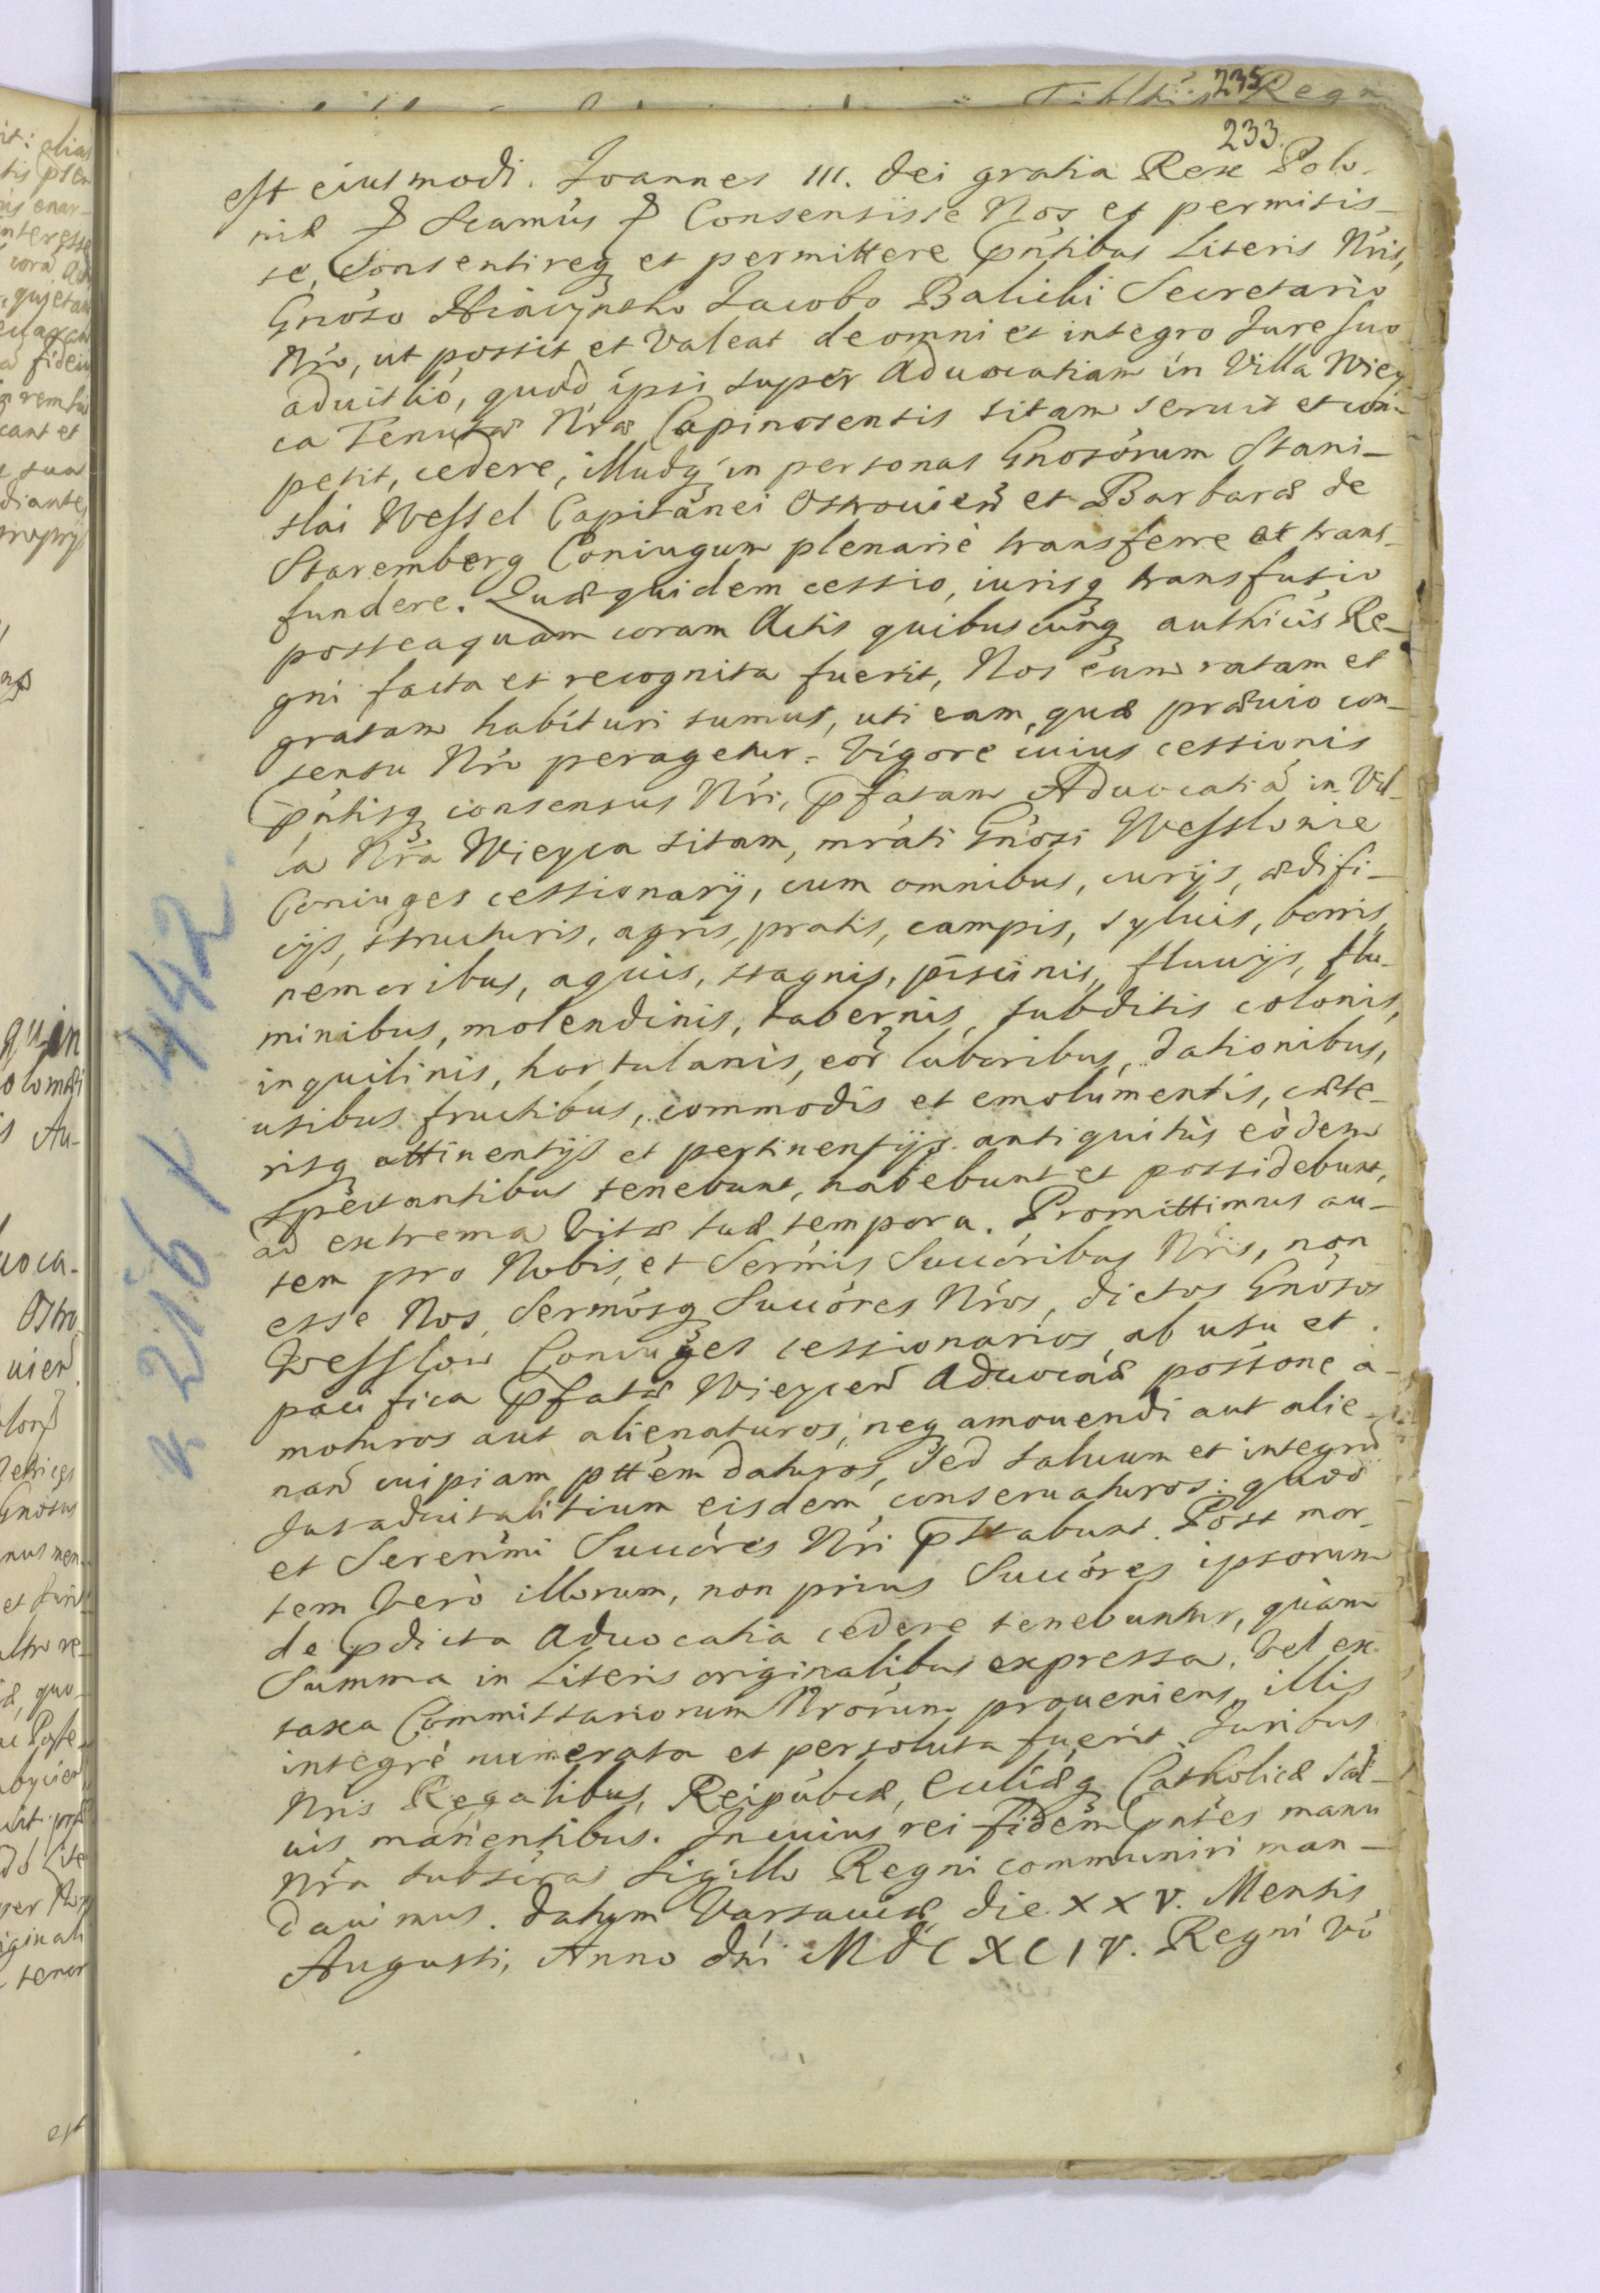 235.
233.
est eiusmodi. Joannes III. Dei gratia Rex Polo-
niæ & Scamús & Consensisse Nos et permisis-
se, Consentireq et permittere pñtibus Literis Nris,
Gnóso Hiacyntho Jacobo Balicki Secretario
Nró, ut possit et valeat de omni et integro Jure suo
aduitlió, quod ipsi super Aduocatiam in Villa Wiey
ca Tenutæ Nræ Capinosensis sitam seruit et com-
petit, cedere, illudq in personas Gnosórum Stani-
slai Wessel Capitánei Ostrouień et Barbaræ de
Staremberg Coniugum plenariè transferre et trans-
fundere. Quæ quidem cessio, iurisq transfusio
posteaquam coram Actis quibuscunq authicis Re-
gni facta et recognita fuerit, Nos eam ratam et
gratam habituri sumus, uti eam, quæ præuio con-
sensu Nró peragetur. Vigore cuius cessionis
pñtisq consensus Nri, pfatam Aduocatiá in Vil-
la Nrâ Wieyca sitam, mráti Gnósi Wesslowie
Coniuges cessionarij, cum omnibus, curijs, ædifi-
cijs, structuris, agris, pratis, campis, syluis, borris,
nemoribus, aquis, stagnis, piscinis, fluuijs, flu-
minibus, molendinis, tabernis, subditis colonis,
inquilinis, hortulanis, eor laboribus, dationibus,
usibus fructibus, commodis et emolumentis, cæte-
risq attinentijs et pertinentijs antiquitùs eòdem
spectantibus tenebunt, habebunt et possidebunt,
ad extrema Vitæ suæ tempora. Promittimus au-
tem pro Nobis, et Serṁis Succóribus Nris, non
esse Nos, Sermósq Succóres Nros, dictos Gnósos
Wesslow Coniuges cessionarios, ab usu et
pacifica pfatæ Wieyceń Aduocáæ possone a-
moturos aut alienaturos, neq amouendi aut alie-
nań cuipiam pttém daturos, sed saluum et integrũ
Jus aduitalitium eisdem conseruaturos: quod
et Sereńmi Succóres Nri pstabunt. Post mor-
tem Verò illorum, non prius Succóres ipsorum
de pdicta Aduocatia cedere tenebuntur, quàm
Summa in Literis originalibus expressa, Vel ex
taxa Commissariorum Nrorum proueniens, illis
integrè numerata et persoluta fuerit. Juribus
Nris Regalibus, Reipúbcæ, Eccliæq Catholicæ sal-
uis manentibus. In cuius rei fidem pntes manu
Nrâ subscras Sigillo Regni communiri man-
dauimus. Datum Varsauiæ die XXV. Mensis
Augusti, Anno Dni MDCXCIV. Regni Vò
k 216 v 442